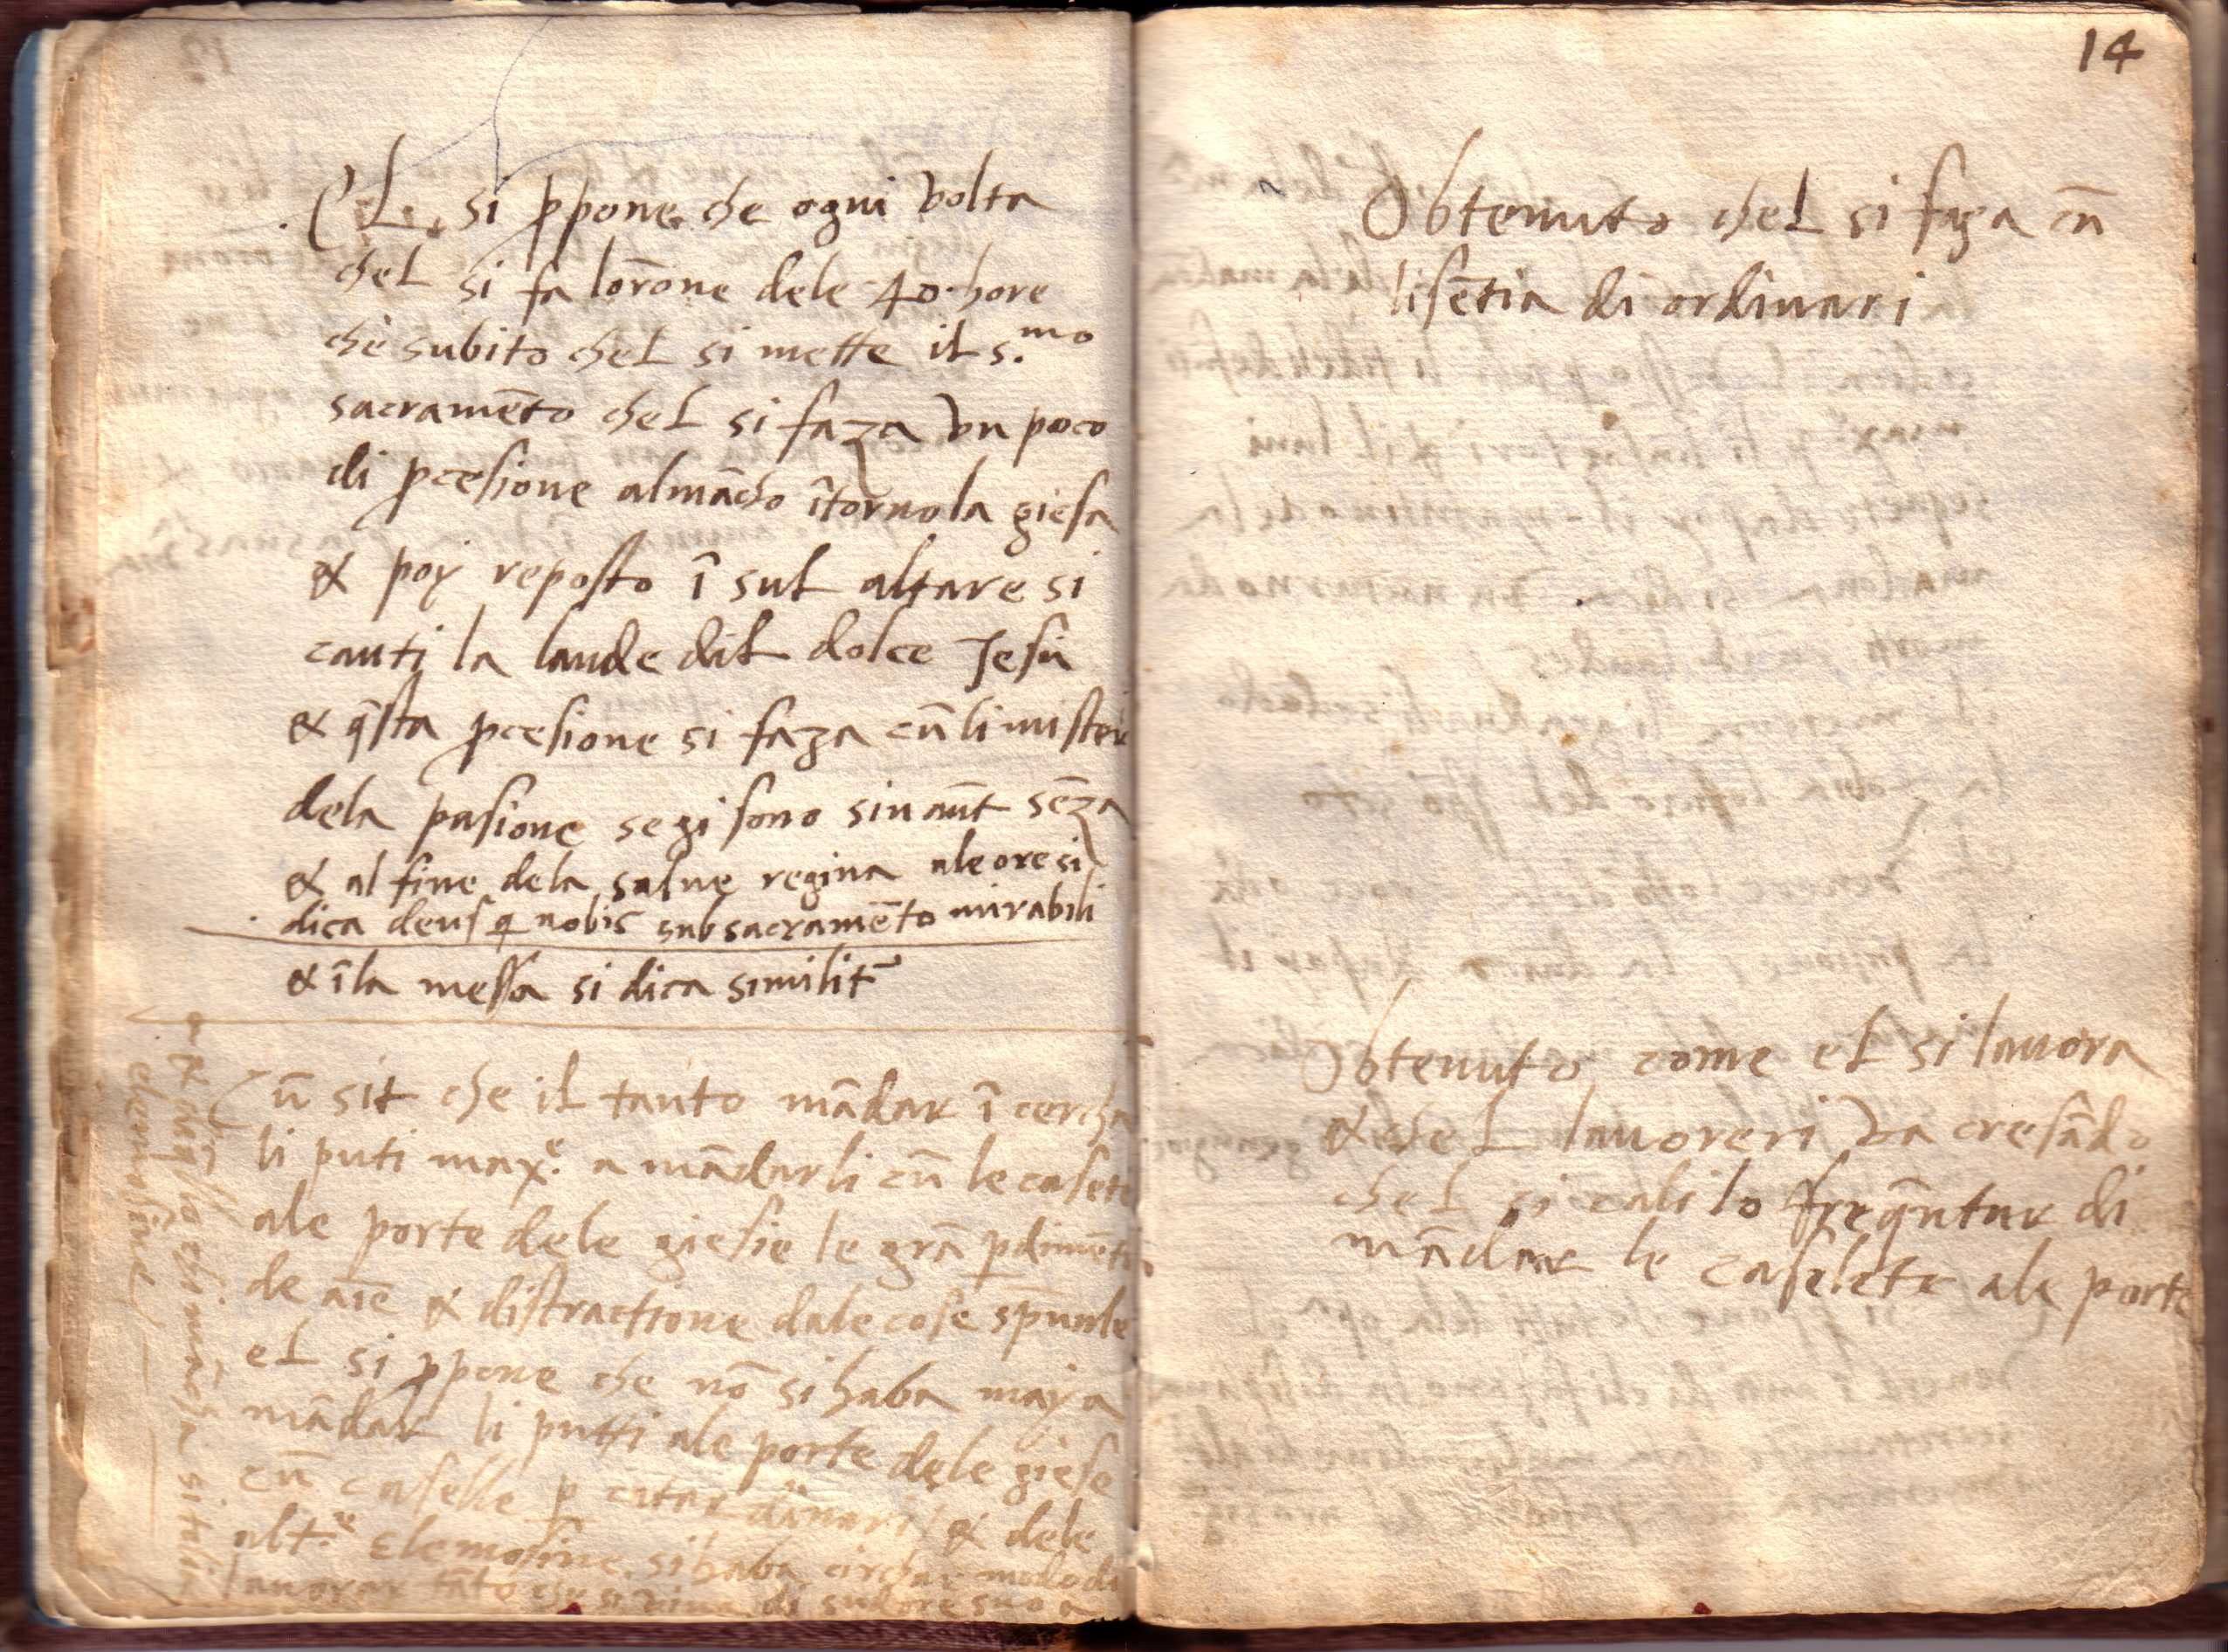 EL si ꝓpone che ogni volta
cheL si fa lorōne dele 40 hore
che subito cheL si mette iL s.mo
sacramēto cheL si faza un poco
di ꝓcesione almācho ītorno la giesa
& poy reposto ī suL altare si
canti la laude diL dolce Jesu
& q̄sta ꝓcesione si faza cū li misterii
dela pasione se gi sono sinaūt sēza
& al fine dela salue regina ale ore si
dica deus q nobis sub sacramēto mirabili
& ī la messa si dica similit̄
Cū sit che iL tanto mādar ī cercha
li puti max.e a mādarli cū le casete
ale porte dele giesie le grā ꝑdimēto
de aīe & distractione dale cose sp̄uale
eL si ꝓpone che nō si haba may a
mādar li putti ale porte dele giese
cū caselle ꝑ catar dinari & dele
alt.e elemosine si haba circhar modo di
lauorar tāto che si viua di sudore suo
& di q̄llo che māca si
elemosine
14
Obtenuto cheL si faza cū
lisētia di ordinari
Obtenuto come eL si lauora
& che L lauoreri va cresādo
cheL si cali lo freq̄ntar di
mādar le caselete ale porte